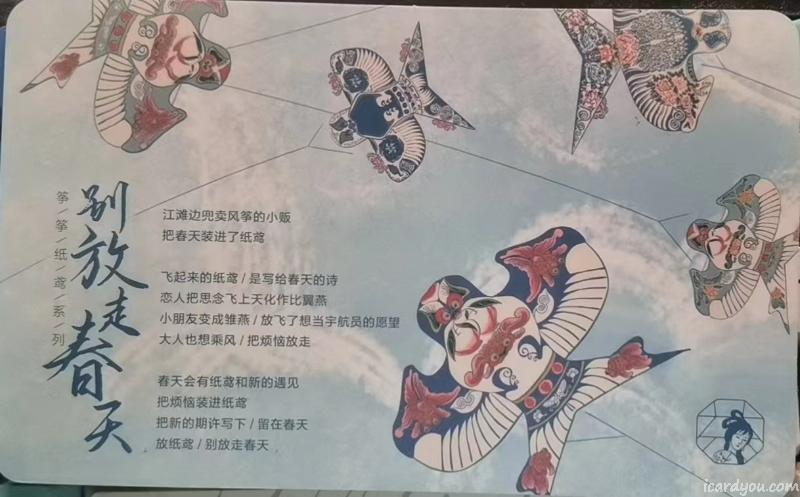 别放走春天
筝/筝/纸/鸢/系/列
江滩边兜卖风筝的小贩
把春天装进了纸鸢
飞起来的纸鸢/是写给春天的诗
恋人把思念飞上天化作比翼燕
小朋友变成雏燕/放飞了想当宇航员的愿望
大人也想乘风/把烦恼放走
春天会有纸鸢和新的遇见
把烦恼装进纸鸢
把新的期许写下/留在春天
放纸鸢/别放走春天
icardyou.com